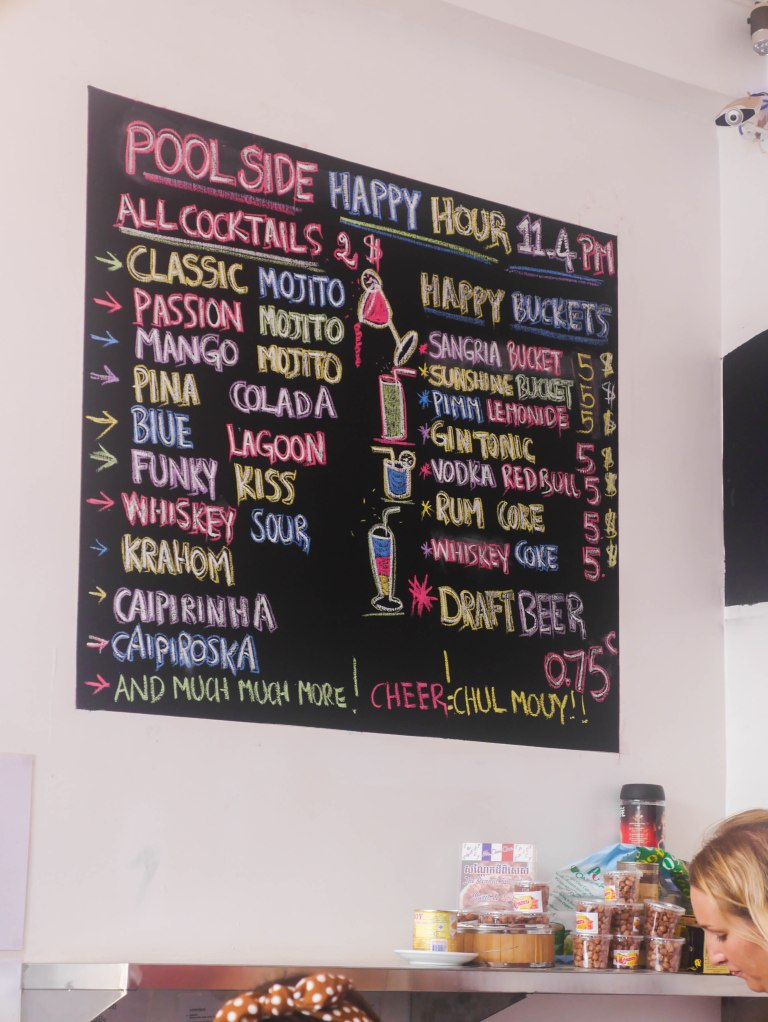 POOLSIDE HAPPY HOUR 11-4 PM
ALL COCKTAILS 2 $
CLASSIC MOJITO
PASSION MOJITO
MANGO MOJITO
PINA COLADA
BLUE LAGOON
FUNKY KISS
WHISKEY SOUR
KRAHOM
CAIPIRINHA
CAIPIROSKA
AND MUCH MUCH MORE!
HAPPY BUCKETS
SANGRIA BUCKET 5 $
SUNSHINE BUCKET 5 $
PIMM LEMONIDE 5 $
GIN TONIC 5 $
VODKA RED BULL 5 $
RUM COKE 5 $
WHISKEY COKE 5 $
DRAFT BEER
0.75 c
CHEER=CHUL MOUY!!